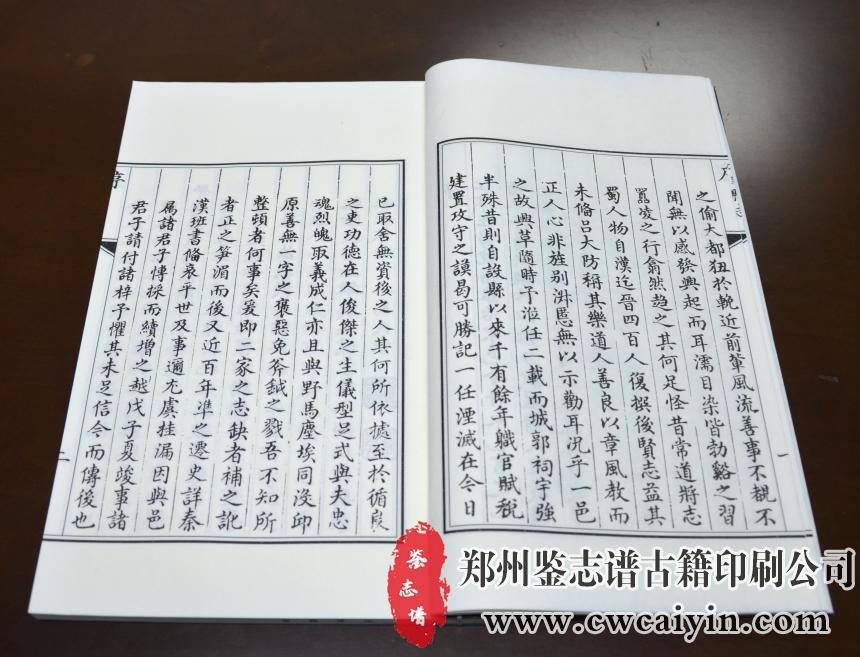 之偷大都狃於輓近前輩風流善事不覩不
聞無以感發興起而耳濡目染皆勃谿之習
囂凌之行翕然趨之其何足怪昔常道將志
蜀人物自漢迄晉四百人復撰後賢志益其
未備呂大防稱其樂道人善良以章風教而
正人心非旌别淑慝無以示勸耳況乎一邑
之故與草隨時予涖任二載而城郭祠宇強
半殊昔則自設縣以來千有餘年職官賦稅
建置攻守之謨曷可勝記一任湮滅在今日
一
序
已取舍無資後之人其何所依據至於循良
之吏功德在人俊傑之生儀型足式與夫忠
魂烈魄取義成仁亦且與野馬塵埃同沒卬
原善無一字之褒惡免斧鉞之戮吾不知所
整頓者何事矣爰即二家之志缺者補之訛
者正之笋湄而後又近百年準之遷史詳秦
漢班書備哀平世及事遍尤虞挂漏因與邑
屬諸君子博採而續增之越戊子夏竣事諸
君子請付諸梓予懼其未足信今而傳後也
二
序
鉴志谱
郑州鉴志谱古籍印刷公司
www.cwcaiyin.com